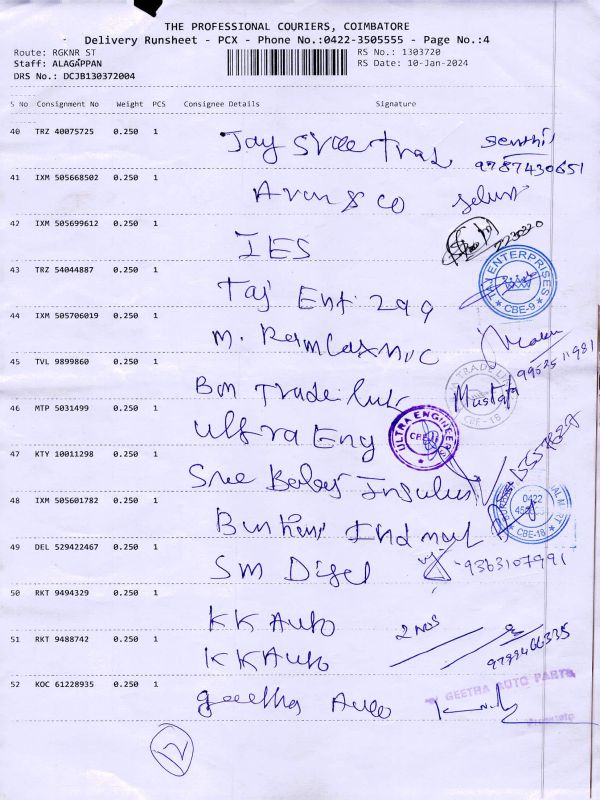 THE PROFESSIONAL COURIERS, COIMBATORE
Delivery Runsheet - PCX - Phone No.:0422-3505555 - Page No.:4
Route: RGKNR ST
RS No.: 1303720
Staff: ALAGAPPAN
RS Date: 10-Jan-2024
DRS No.: DCJB130372004
S No Consignment No Weight PCS Consignee Details Signature
40 TRZ 40075725 0.250 1
Jay Sree Trad
Senthil
9787430651
41 IXM 505668502 0.250 1
Arun & co
42 IXM 505699612 0.250 1
IES
43 TRZ 54044887 0.250 1
Taj Ent. 299
TAJ ENTERPRISES
CBE-9
44 IXM 505706019 0.250 1
M. Ramlaxm
9952511981
45 TVL 9899860 0.250 1
Bm Trade link
Mustafa
TRADE LI
CBE-18
46 MTP 5031499 0.250 1
Ultra Eng
ULTRA ENGINEER
CBE
47 KTY 10011298 0.250 1
Sree
48 IXM 505601782 0.250 1
Ind
0422
CBE-18
49 DEL 529422467 0.250 1
SM Disel
9363107991
50 RKT 9494329 0.250 1
KK Auto
2 Nos
51 RKT 9488742 0.250 1
KK Auto
52 KOC 61228935 0.250 1
geetha Auto
GEETHA AUTO PARTS
12